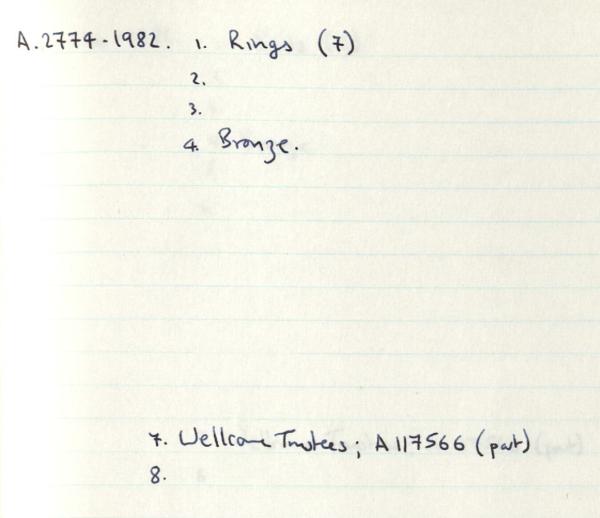 A.2774-1982. 1. Rings (7)
2.
3.
4. Bronze.
7. Wellcome Trustees; A117566 (part)
8.